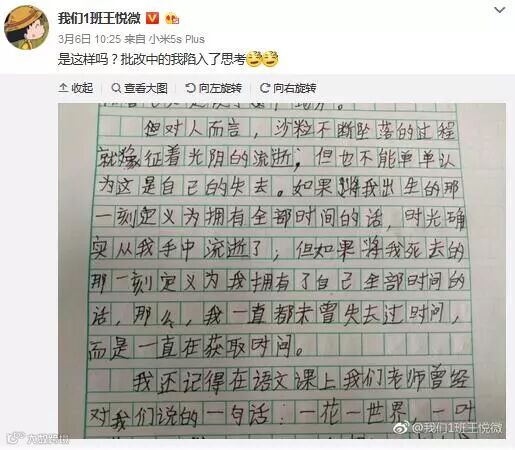 我们1班王悦微
3月6日 10:25 来自 小米5s Plus
是这样吗？批改中的我陷入了思考
收起 查看大图 向左旋转 向右旋转
但对人而言，沙粒不断坠落的过程
就像征着光阴的流逝，但也不能单单认
为这是自己的失去。如果将我出生的那
一刻定义为拥有全部时间的话，时光确
实从我手中流逝了，但如果将我死去的
那一刻定义为我拥有了自己全部时间的
话，那么，我一直都未曾失去过时间，
而是一直在获取时间。
我还记得在语文课上我们老师曾经
对我们说的一句话：一花一世界，一叶
@我们1班王悦微